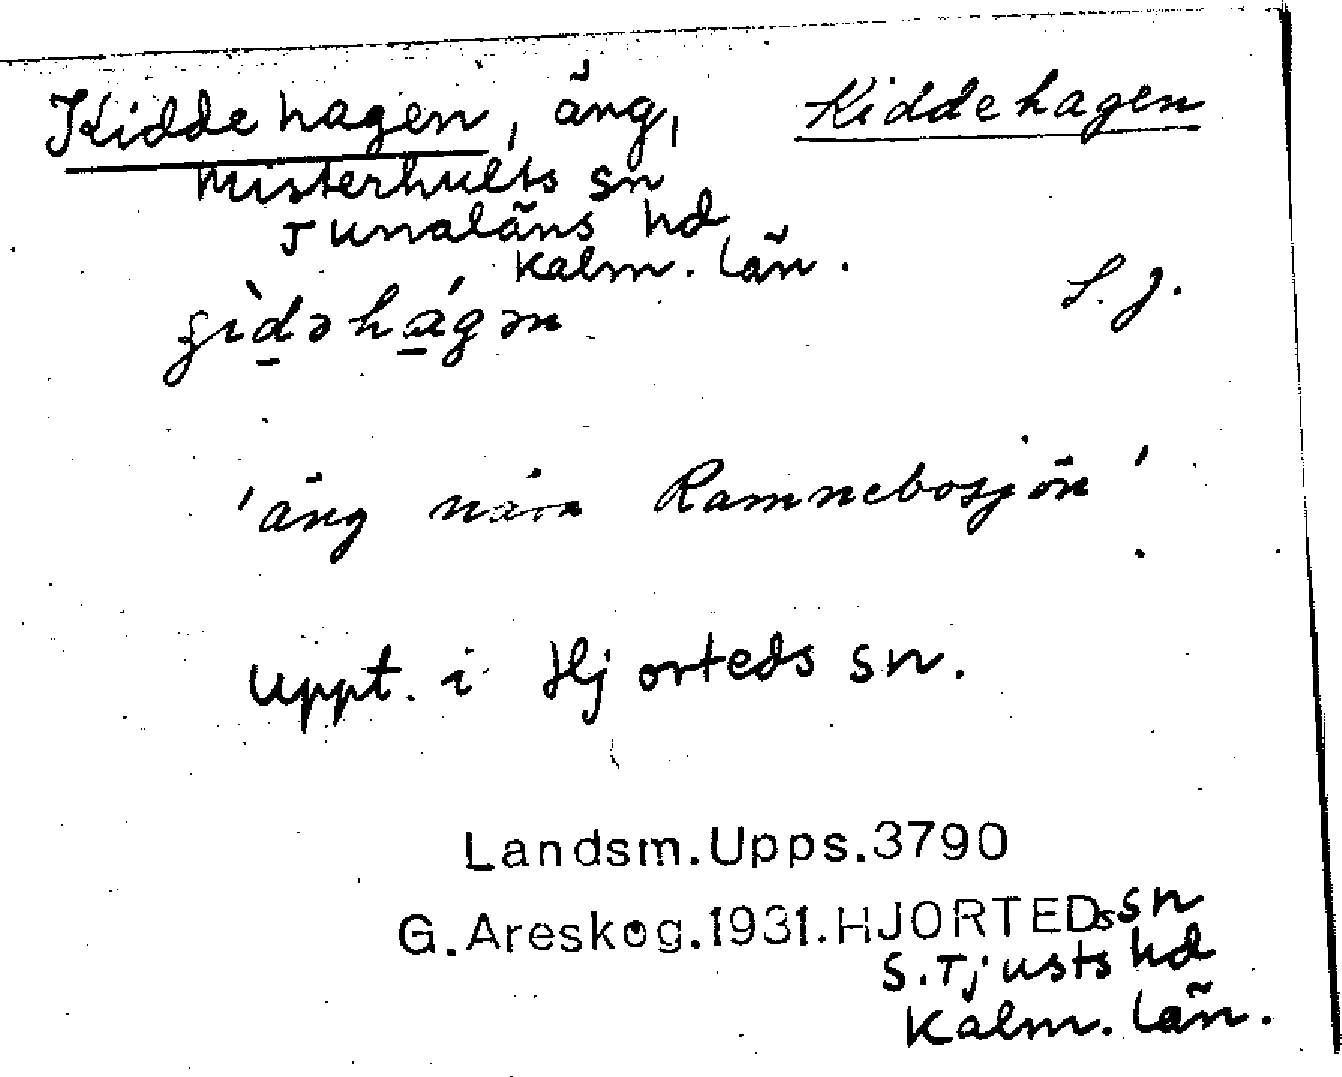 Kiddehagen, äng, Kiddehagen
Misterhults sn
Tunaläns hd
Kalm. län.
S. J.
gìdəhágən
'äng nära Ramnebosjön'
Uppt. i Hjorteds sn.
Landsm.Upps.3790
G.Areskog.1931.HJORTEDs sn
S.Tjusts hd
Kalm. län.